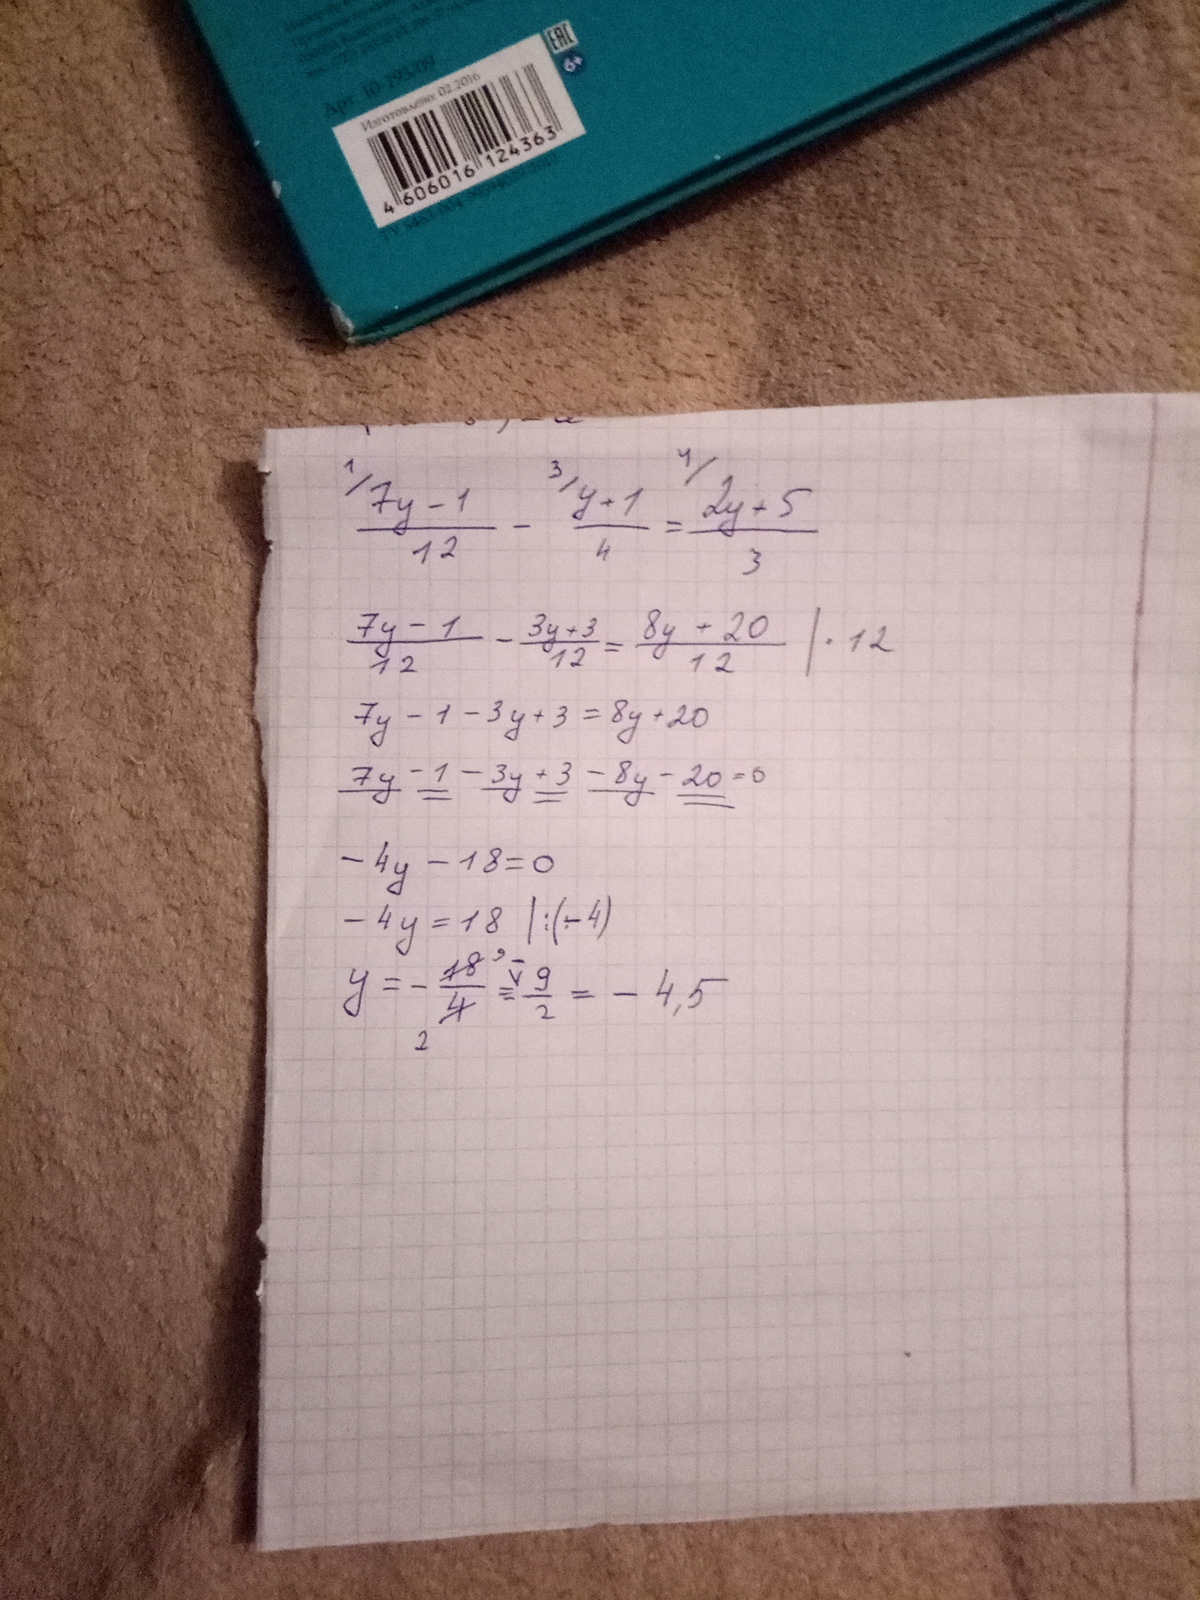 EAC
6+
Арт. 10-195/09
Изготовлено: 02.2016
4 606016 124363
1/ 3/ 4/
(7y - 1)/12 - (y + 1)/4 = (2y + 5)/3
(7y - 1)/12 - (3y + 3)/12 = (8y + 20)/12 | · 12
7y - 1 - 3y + 3 = 8y + 20
7y - 1 - 3y + 3 - 8y - 20 = 0
- 4y - 18 = 0
- 4y = 18 | : (- 4)
y = - 18/4 = - 9/2 = - 4,5
9
2